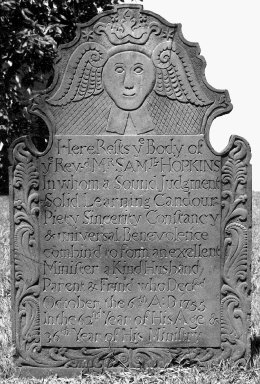 Here Rests yͤ Body of
yͤ Revᵈ Mͬ SAMˡˡ HOPKINS
In whom a Sound Judgment
Solid Learning Candour
Piety Sincerity Constancy
& universal Benevolence
combin'd to form an exellent
Minister a Kind Husband
Parent & Friend who Decd
October, the 6th A:D 1755
In the 62d Year of His Age &
36th Year of His Ministry